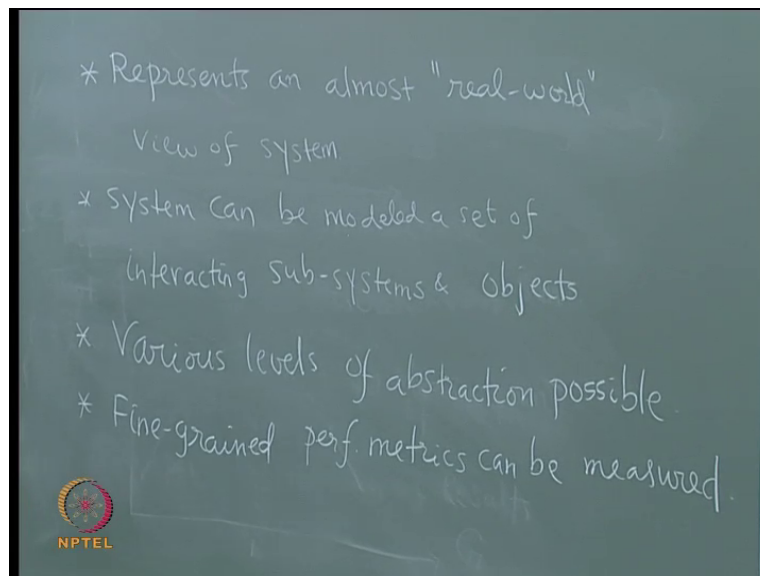 * Represents an almost "real-world"
View of system
* System can be modeled a set of
interacting sub-systems & objects
* Various levels of abstraction possible.
* Fine-grained perf. metrics can be measured.
NPTEL